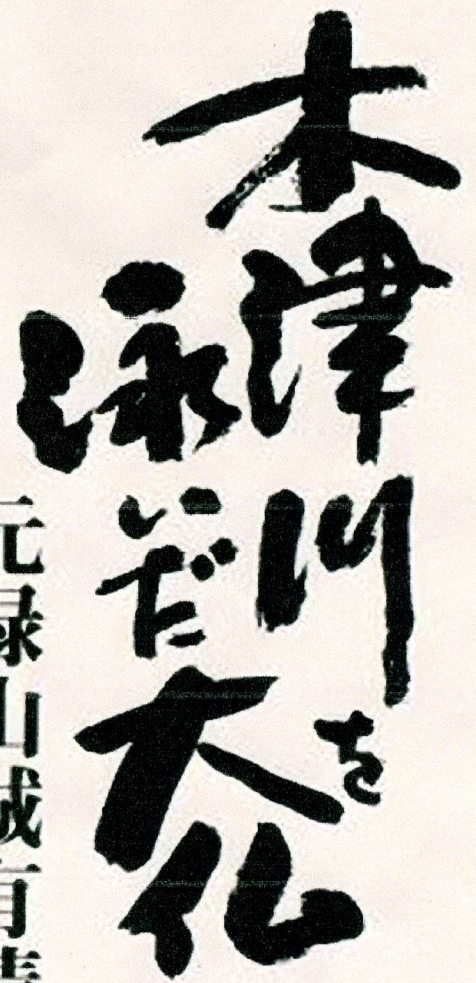 木津川を
泳いだ大仏
元禄山城有情